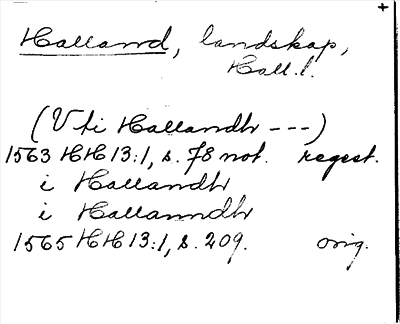 +
Halland, landskap,
Hall. l.
(Vti Hallandh ---)
1563 HH 13:1, s. 78 not. regest.
i Hallandh
i Hallanndh
1565 HH 13:1, s. 209. orig.